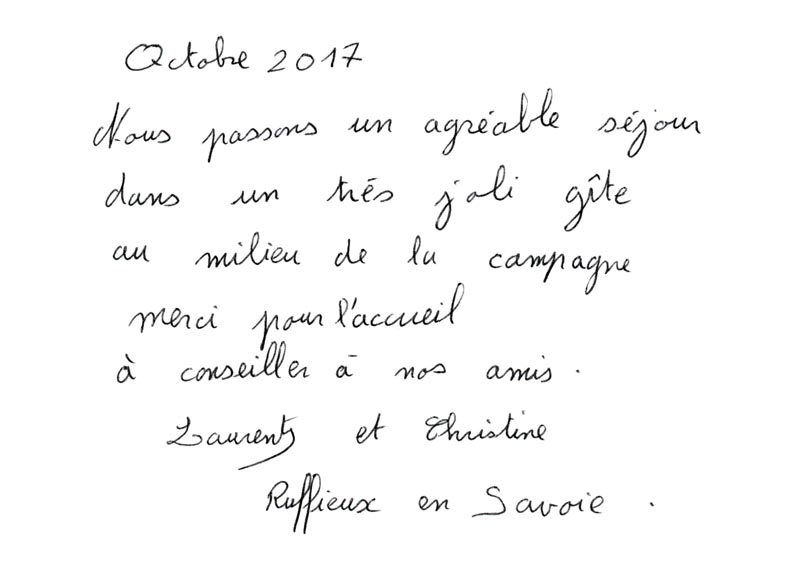 Octobre 2017
Nous passons un agréable séjour
dans un très joli gîte
au milieu de la campagne
merci pour l'accueil
à conseiller à nos amis.
Laurent et Christine
Ruffieux en Savoie.